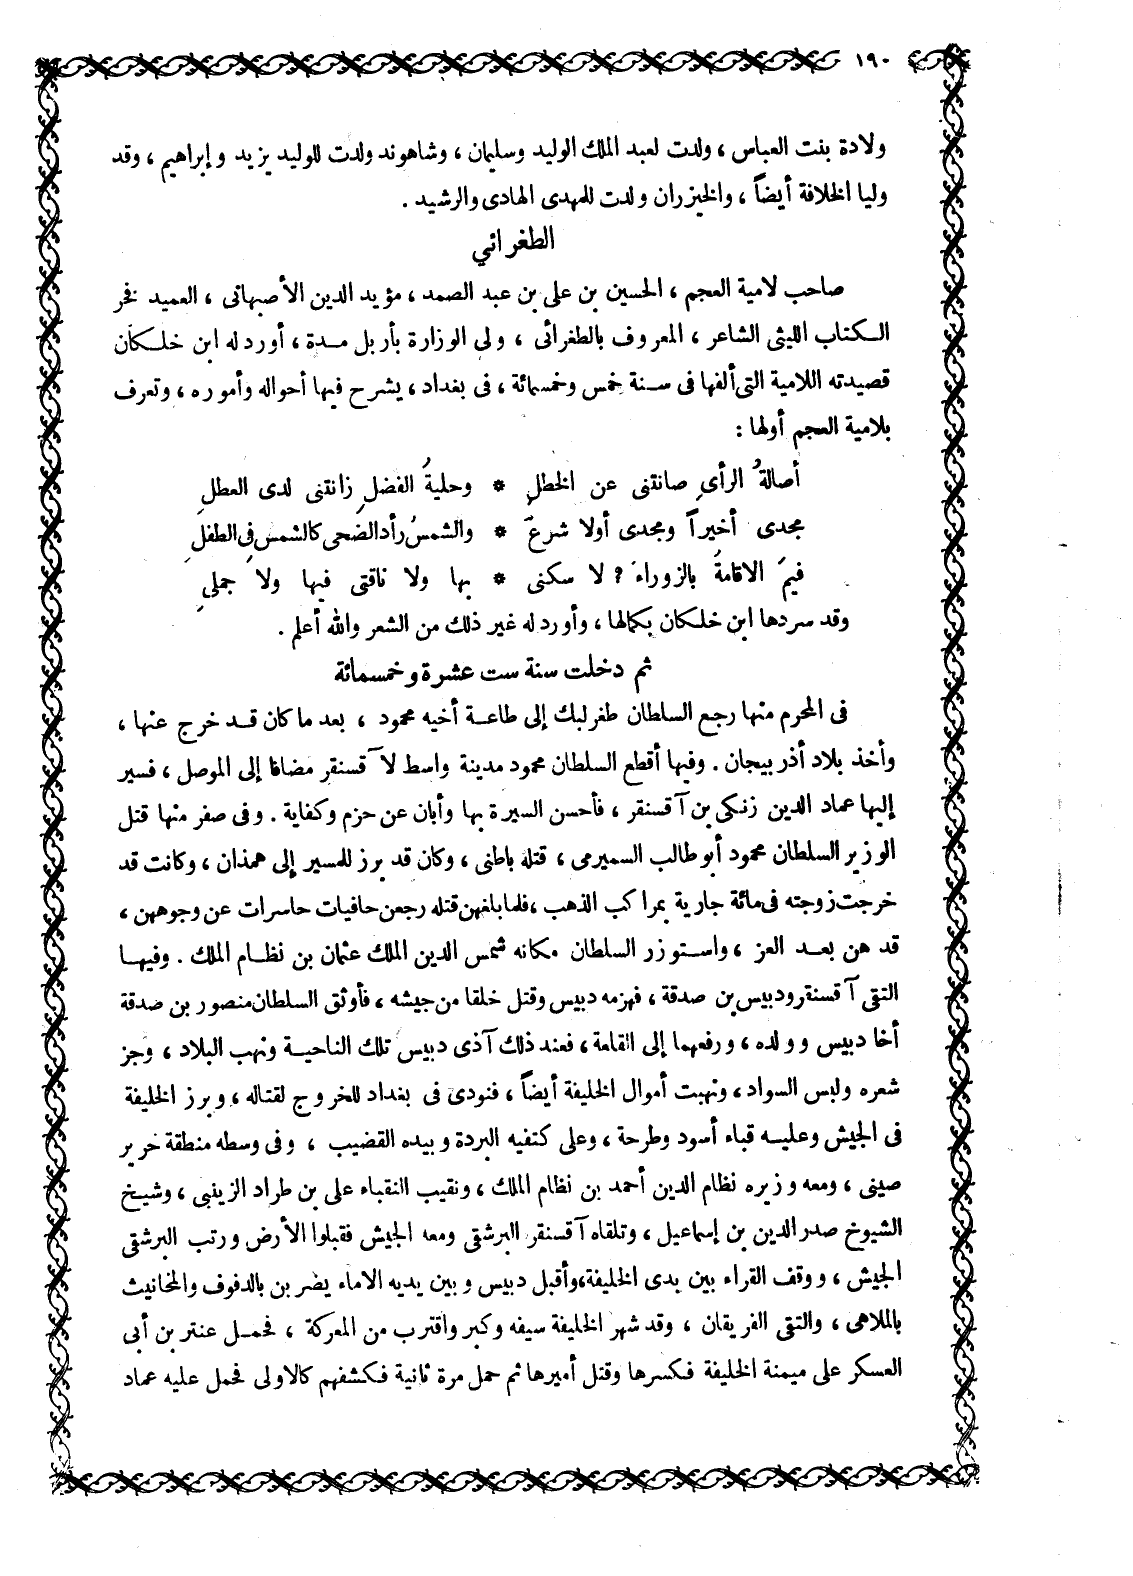 ١٩٠
ولادة بنت العباس ، ولدت لعبد الملك الوليد وسليمان ، وشاهوند ولدت للوليد يزيد وإبراهيم ، وقد
وليا الخلافة أيضاً ، والخيزران ولدت للمهدى الهادى والرشيد .
الطغرائي
صاحب لامية العجم ، الحسين بن على بن عبد الصمد ، مؤيد الدين الأصبهانى ، العميد فخر
الكتاب الليثى الشاعر ، المعروف بالطغرائى ، ولى الوزارة بأربل مدة ، أورد له ابن خلكان
قصيدته اللامية التى ألفها فى سنة خمس وخمسمائة ، فى بغداد ، يشرح فيها أحواله وأموره ، وتعرف
بلامية العجم أولها :
أصالةُ الرأىِ صانتنى عن الخطلِ * وحليةُ الفضلِ زانتنى لدى العطلِ
مجدى أخيراً ومجدى أولا شرعٌ * والشمسُ رأد الضحى كالشمسِ فى الطفلِ
فيمَ الاقامةُ بالزوراءِ ؟ لا سكنى * بها ولا ناقتى فيها ولا جملىِ
وقد سردها ابن خلكان بكمالها ، وأورد له غير ذلك من الشعر والله أعلم .
ثم دخلت سنة ست عشرة وخمسمائة
فى المحرم منها رجع السلطان طغرلبك إلى طاعة أخيه محمود ، بعد ما كان قد خرج عنها ،
وأخذ بلاد أذربيجان . وفيها أقطع السلطان محمود مدينة واسط لآقسنقر مضافا إلى الموصل ، فسير
إليها عماد الدين زنكى بن آقسنقر ، فأحسن السيرة بها وأبان عن حزم وكفاية . وفى صفر منها قتل
الوزير السلطان محمود أبو طالب السميرمى ، قتله باطنى ، وكان قد برز للمسير إلى همذان ، وكانت قد
خرجت زوجته فى مائة جارية بمراكب الذهب ، فلما بلغهن قتله رجعن حافيات حاسرات عن وجوههن ،
قد هن بعد العز ، واستوزر السلطان مكانه شمس الدين الملك عثمان بن نظام الملك . وفيها
التقى آقسنقر ودبيس بن صدقة ، فهزمه دبيس وقتل خلقا من جيشه ، فأوثق السلطان منصور بن صدقة
أخا دبيس وولده ، ورفعهما إلى القلعة ، فعند ذلك آذى دبيس تلك الناحية ونهب البلاد ، وجز
شعره ولبس السواد ، ونهبت أموال الخليفة أيضاً ، فنودى فى بغداد للخروج لقتاله ، وبرز الخليفة
فى الجيش وعليه قباء أسود وطرحة ، وعلى كتفيه البردة وبيده القضيب ، وفى وسطه منطقة حرير
صينى ، ومعه وزيره نظام الدين أحمد بن نظام الملك ، ونقيب النقباء على بن طراد الزينبى ، وشيخ
الشيوخ صدر الدين بن إسماعيل ، وتلقاه آقسنقر البرشقى ومعه الجيش فقبلوا الأرض ورتب البرشقى
الجيش ، ووقف القراء بين يدى الخليفة ، وأقبل دبيس وبين يديه الاماء يضربن بالدفوف والمخانيث
بالملاهى ، والتقى الفريقان ، وقد شهر الخليفة سيفه وكبر واقترب من المعركة ، فحمل عنتر بن أبى
العسكر على ميمنة الخليفة فكسرها وقتل أميرها ثم حمل مرة ثانية فكشفهم كالاولى فحمل عليه عماد